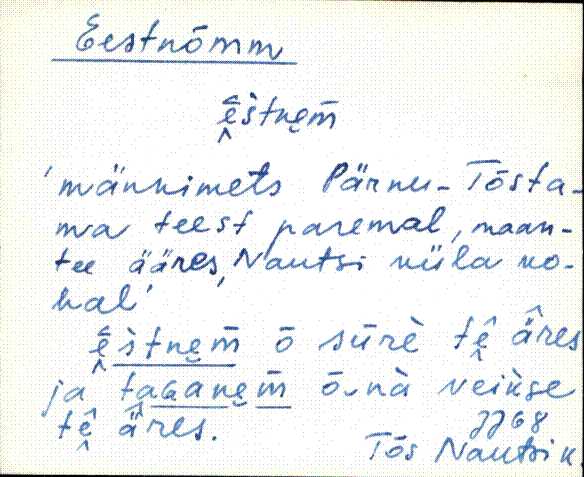 Eestnõmm
ēstne̮m̄
'männimets Pärnu-Tõsta-
ma teest paremal, maan-
tee ääres, Nautsi küla ko-
hal'
ēstne̮m̄ ō sūrè tê̬ ä̂res
ja tagane̮m̄
tê̬ ä̂res.
Tõs Nautsi k.